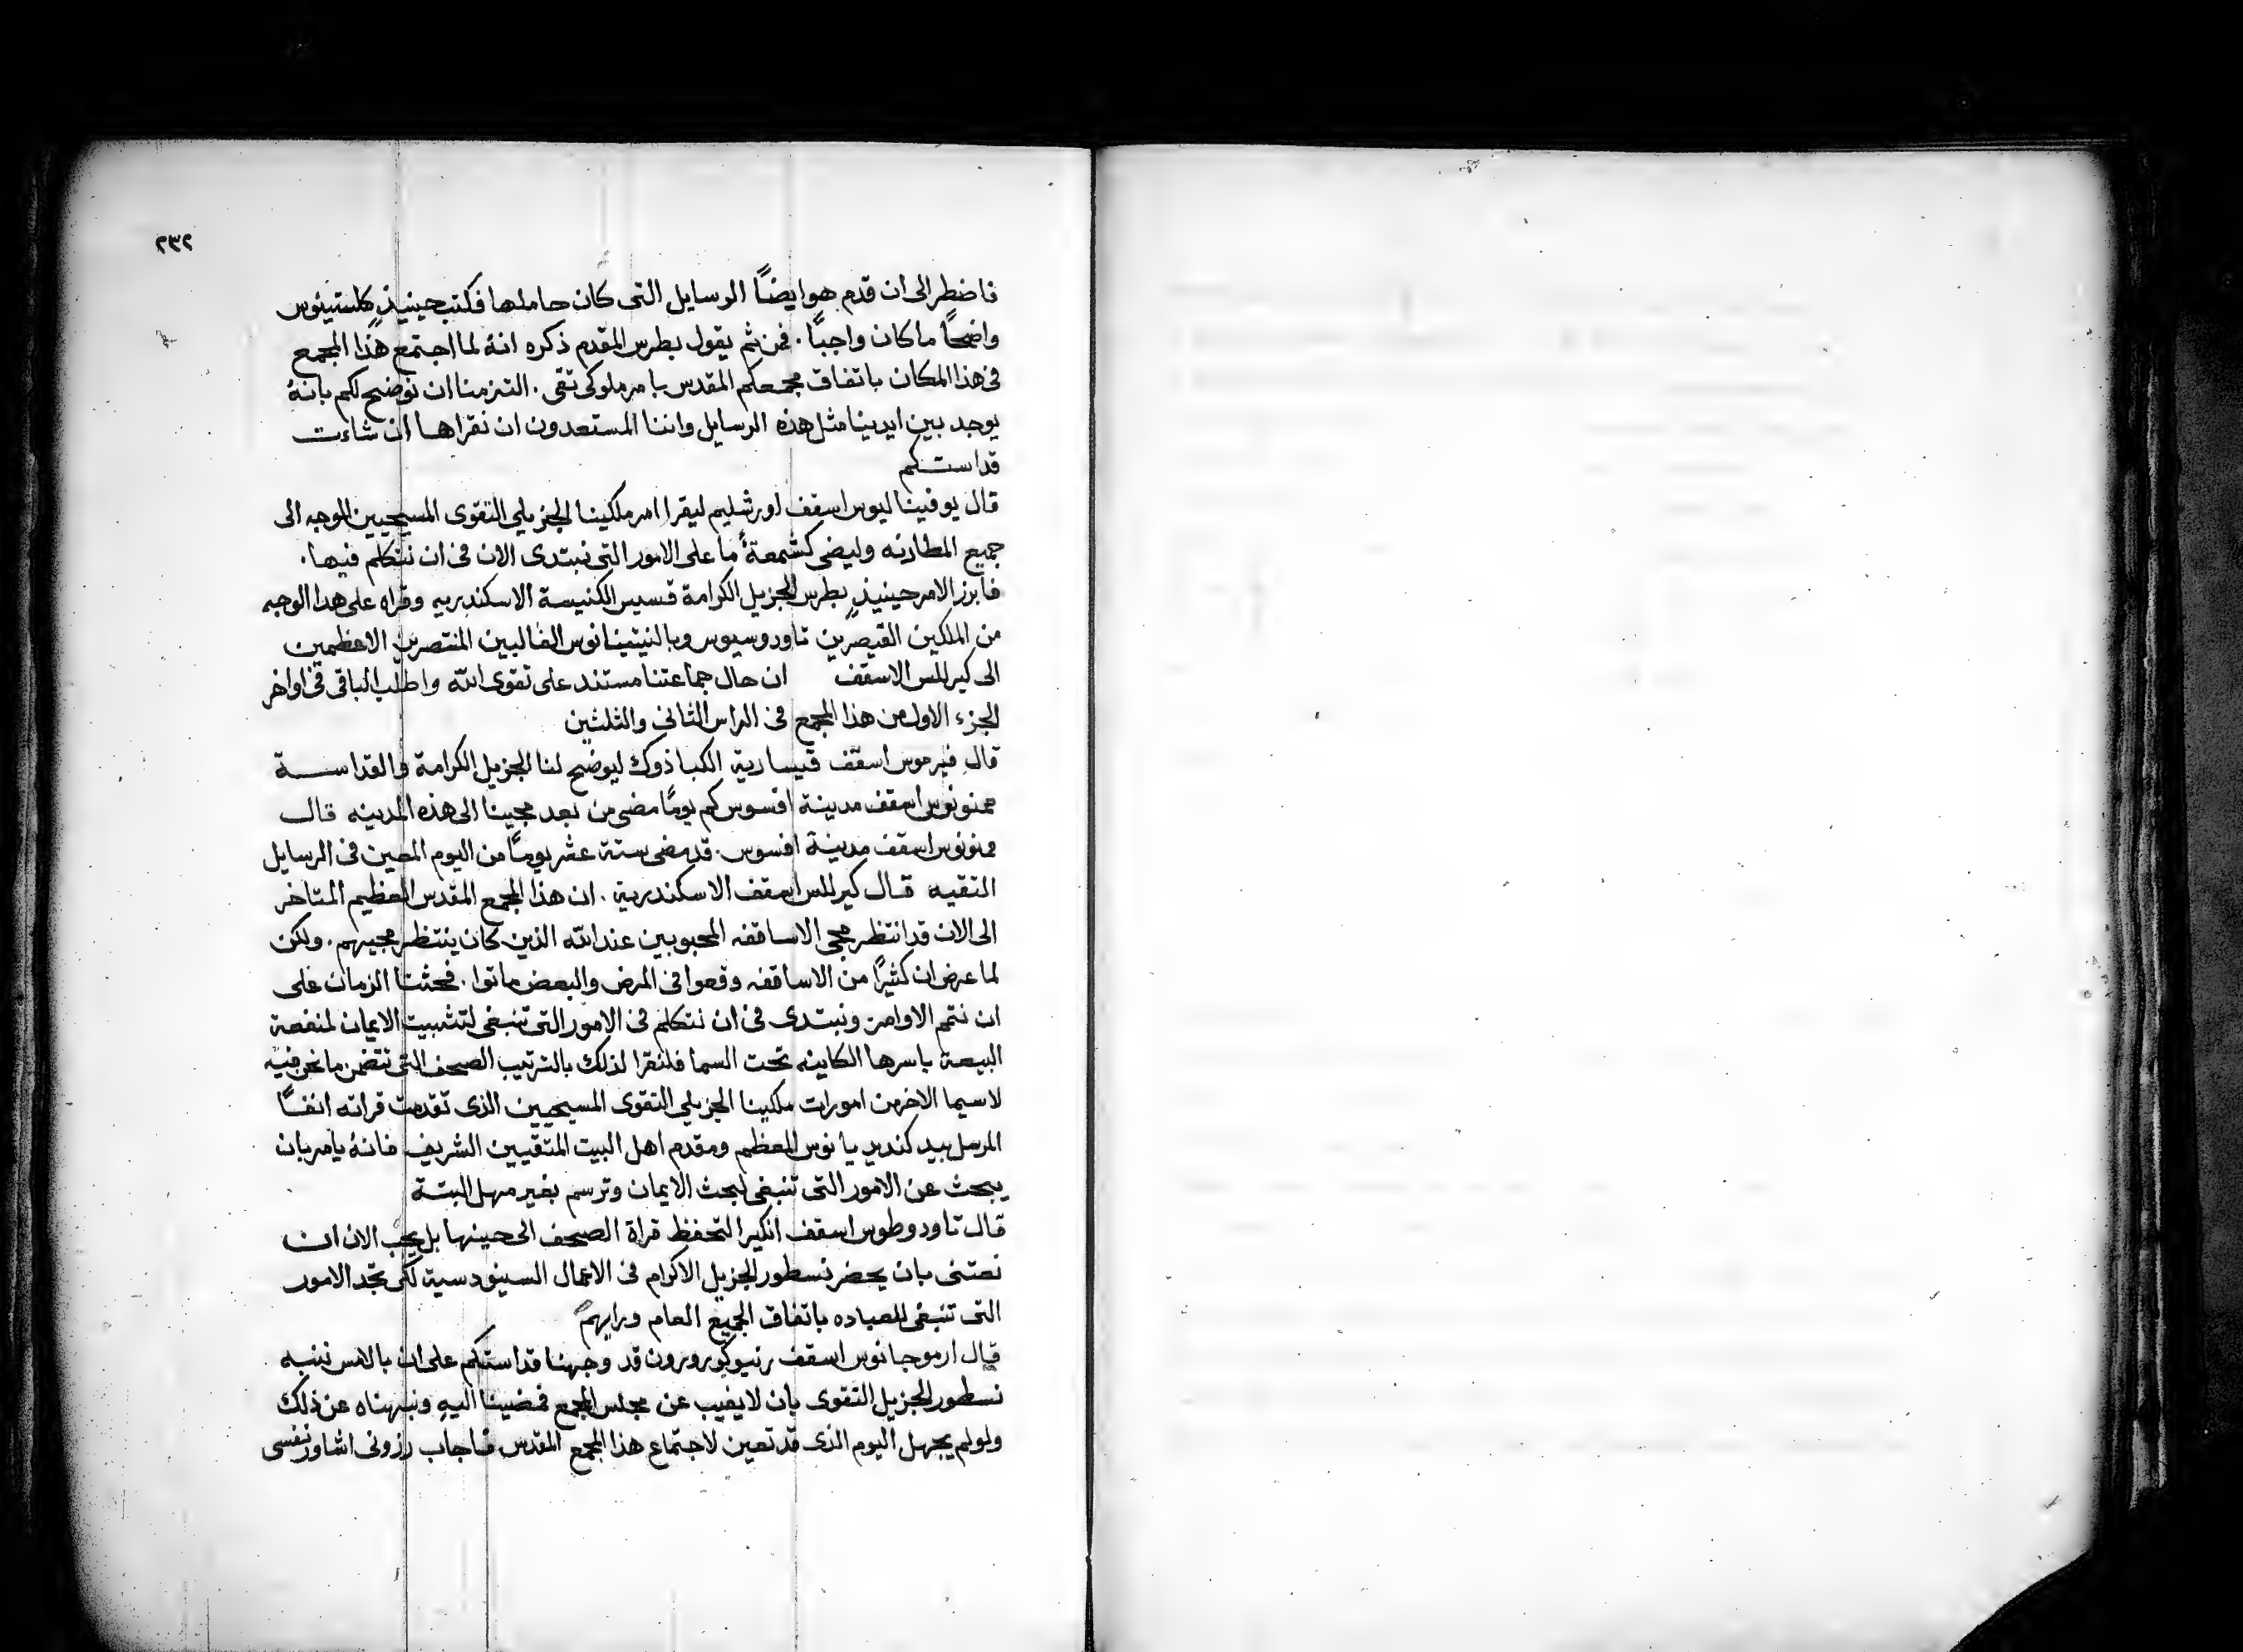 ٢٣٢
فاضطر الى ان قدم هو ايضًا الرسايل التى كان حاملها فكتب حينيذٍ كلستينوس
واضحًا ما كان واجبًا . فمن ثم يقول بطرس المقدم ذكره انهُ لما اجتمع هذا المجمع
فى هذا المكان باتفاق مجمعكم المقدس بامر ملوكى تقى . التزمنا ان نوضح لكم بانهُ
يوجد بين ايدينا مثل هذه الرسايل واننا المستعدون ان نقراها ان شاءت
قداستكم
قال يوفيناليوس اسقف اورشليم ليقرا امر ملكينا الجزيلي التقوى المسيحيين الموجه الى
جميع المطارنه وليضى كشمعةٍ ما على الامور التى نبتدى الان فى ان نتكلم فيها .
فابرز الامر حينيذٍ بطرس الجزيل الكرامة قسيس الكنيسة الاسكندريه وقراه على هدا الوجه
من الملكين القيصرين تاودوسيوس وبالنيتينانوس الغالبين المنتصرين الاعظمين
الى كيرللس الاسقف ان حال جماعتنا مستند على تقوى الله واطلب الباقى فى اواخر
الجزء الاول من هذا المجمع فى الراس الثانى والثلثين
قال فيرموس اسقف قيسارية الكباذوك ليوضح لنا الجزيل الكرامة والقداسة
ممنونوس اسقف مدينة افسوس كم يومًا مضى من بعد مجينا الى هذه المدينه قال
ممنونوس اسقف مدينة افسوس . قد مضى ستة عشر يومًا من اليوم المعين فى الرسايل
التقيه قال كيرللس اسقف الاسكندرية . ان هذا المجمع المقدس العظيم المتاخر
الى الان قد انتظر مجى الاساقفه المحبوبين عند الله الذين كان ينتظر مجيهم . ولكن
لما عرض ان كثيرًا من الاساقفه وقعوا فى المرض والبعض ماتوا . فحثنا الزمان على
ان نتمم الاوامر ونبتدى فى ان نتكلم فى الامور التى تنبغى لتثبيت الايمان لمنفعة
البيعة باسرها الكاينه تحت السما فلنقرا لذلك بالترتيب الصحف التى تتضمن ما نحن فيه
لاسيما الاخر من امورات ملكينا الجزيلي التقوى المسيحيين الذى تقدمت قراته انفًا
المرسل بيد كنديديانوس المعظم ومقدم اهل البيت المتقيين الشريف فانهُ يامر بان
يبحث عن الامور التى تنبغى لبحث الايمان وترسم بغير مهل البتة
قال تاودوطوس اسقف انكيرا لتحفظ قراة الصحف الى حينها بل يجب الان ان
نعتنى بان يحضر نسطور الجزيل الاكرام فى الاعمال السينودسية لكى تجد الامور
التى تنبغى للعباده باتفاق الجميع العام ورايهم
قال ارموجانوس اسقف رنيوكورورون قد وجهنا قداستكم على ان بالامس ننبه
نسطور الجزيل التقوى بان لا يغيب عن مجلس المجمع فمضينا اليهِ ونبهناه عن ذلك
ولو لم يجهل اليوم الذى قد تعين لاجتماع هذا المجمع المقدس فاجاب رزونى اشاور نفسى